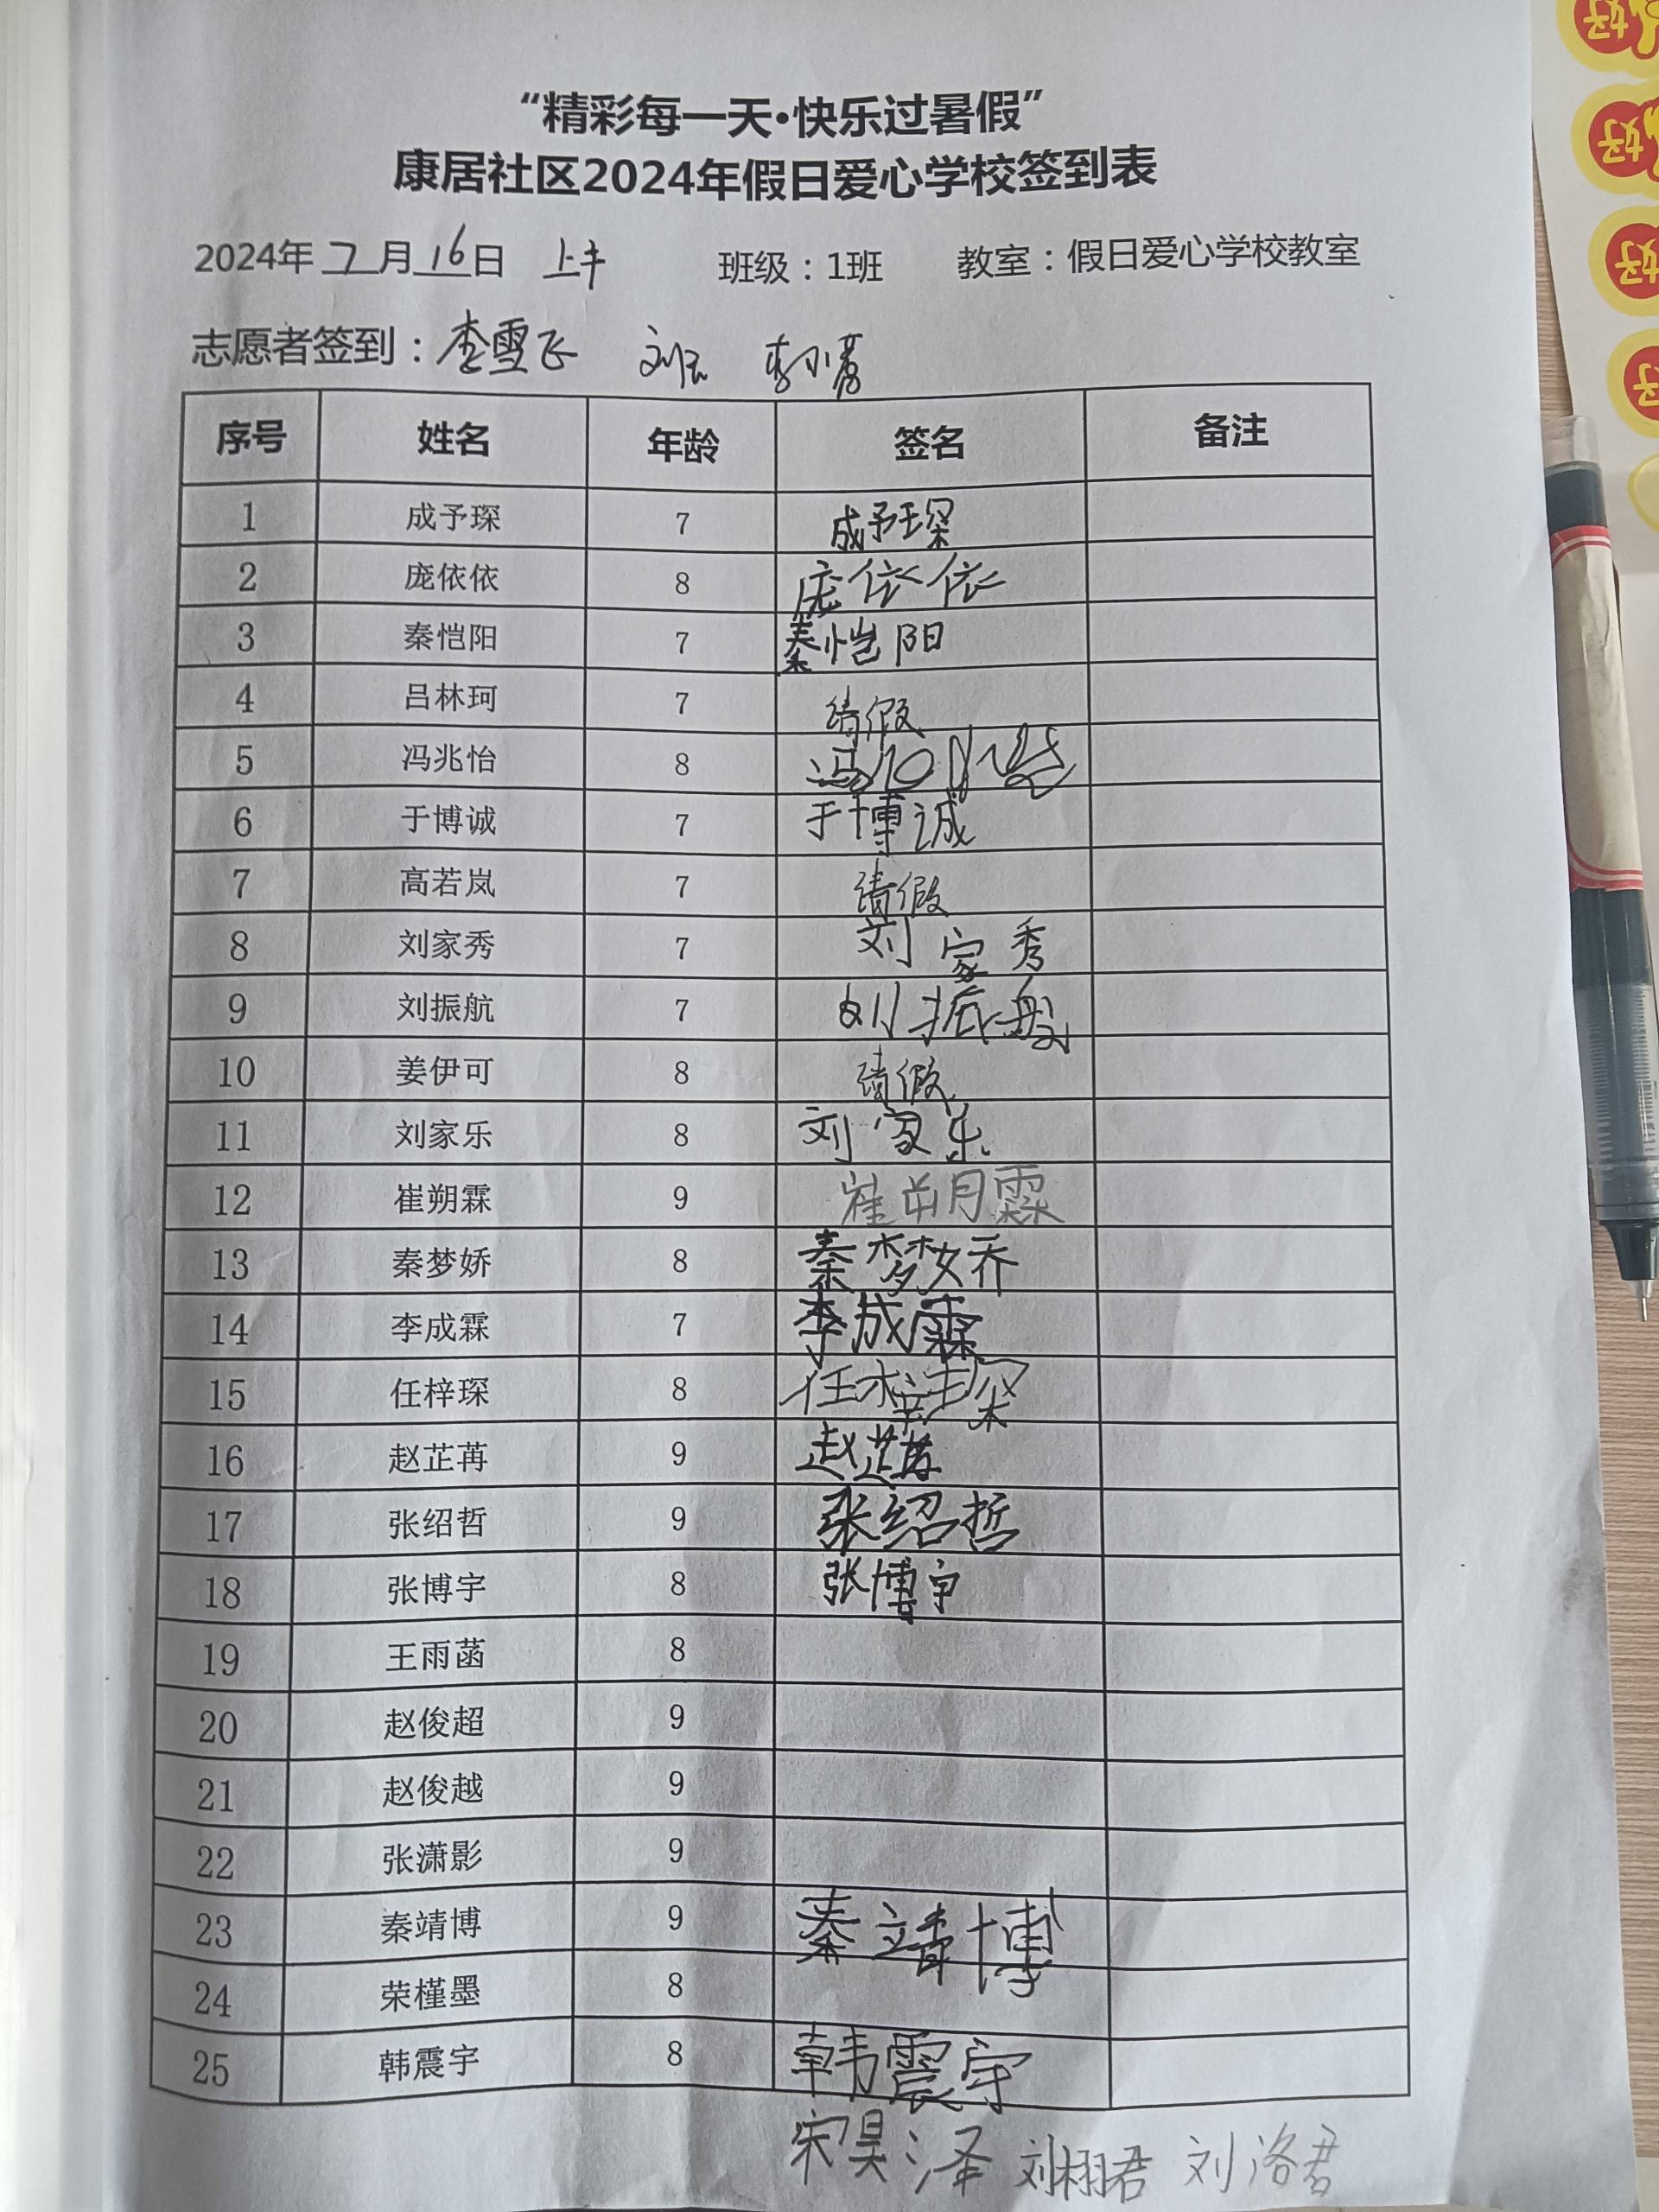 “精彩每一天·快乐过暑假”
康居社区2024年假日爱心学校签到表
2024年 7 月 16 日 上午 班级：1班 教室：假日爱心学校教室
志愿者签到：李雪飞 刘云
序号 姓名 年龄 签名 备注
1 成予琛 7 成予琛
2 庞依依 8 庞依依
3 秦恺阳 7 秦恺阳
4 吕林珂 7 请假
5 冯兆怡 8 冯兆怡
6 于博诚 7 于博诚
7 高若岚 7 请假
8 刘家秀 7 刘家秀
9 刘振航 7 刘振航
10 姜伊可 8 请假
11 刘家乐 8 刘家乐
12 崔朔霖 9 崔朔霖
13 秦梦娇 8 秦梦娇
14 李成霖 7 李成霖
15 任梓琛 8 任梓琛
16 赵芷苒 9 赵芷苒
17 张绍哲 9 张绍哲
18 张博宇 8 张博宇
19 王雨菡 8
20 赵俊超 9
21 赵俊越 9
22 张潇影 9
23 秦靖博 9 秦靖博
24 荣槿墨 8
25 韩震宇 8 韩震宇
宋昊泽 刘栩君 刘洛君
好
好
好
好